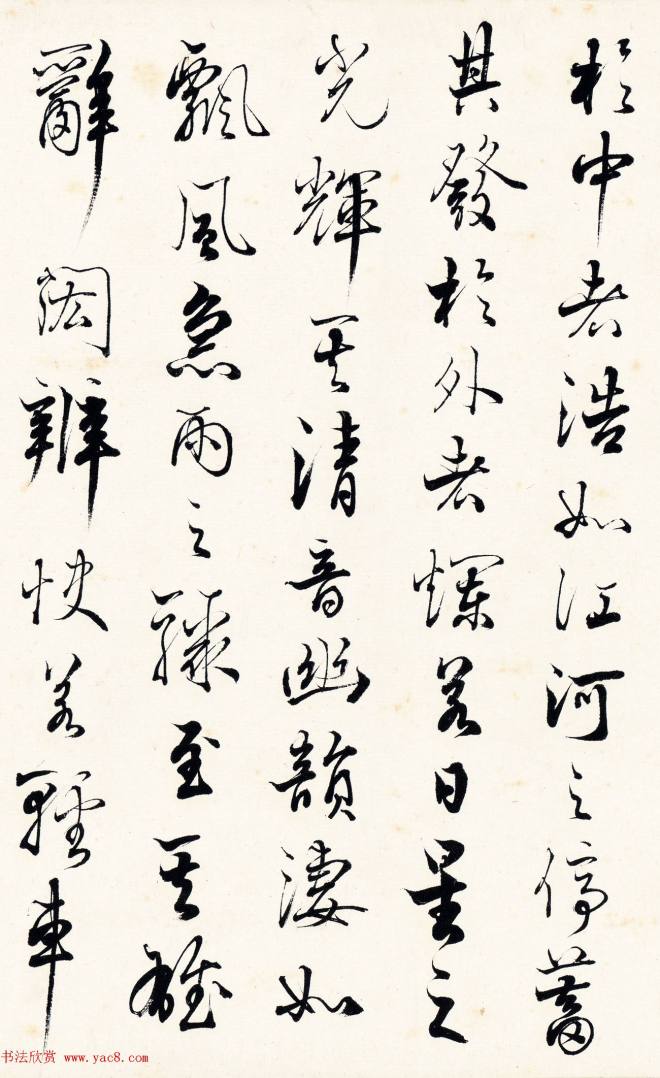 於中者浩如江河之停蓄
其發於外者爛若日星之
光輝其清音幽韻淒如
飄風急雨之驟至其雄
辭閎辨快若輕車
书法欣赏 www.yac8.com